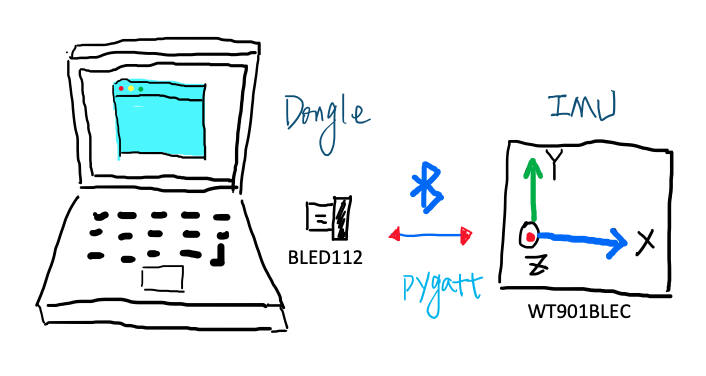 Dongle
IMU
BLED112
pygatt
Y
X
Z
WT901BLEC